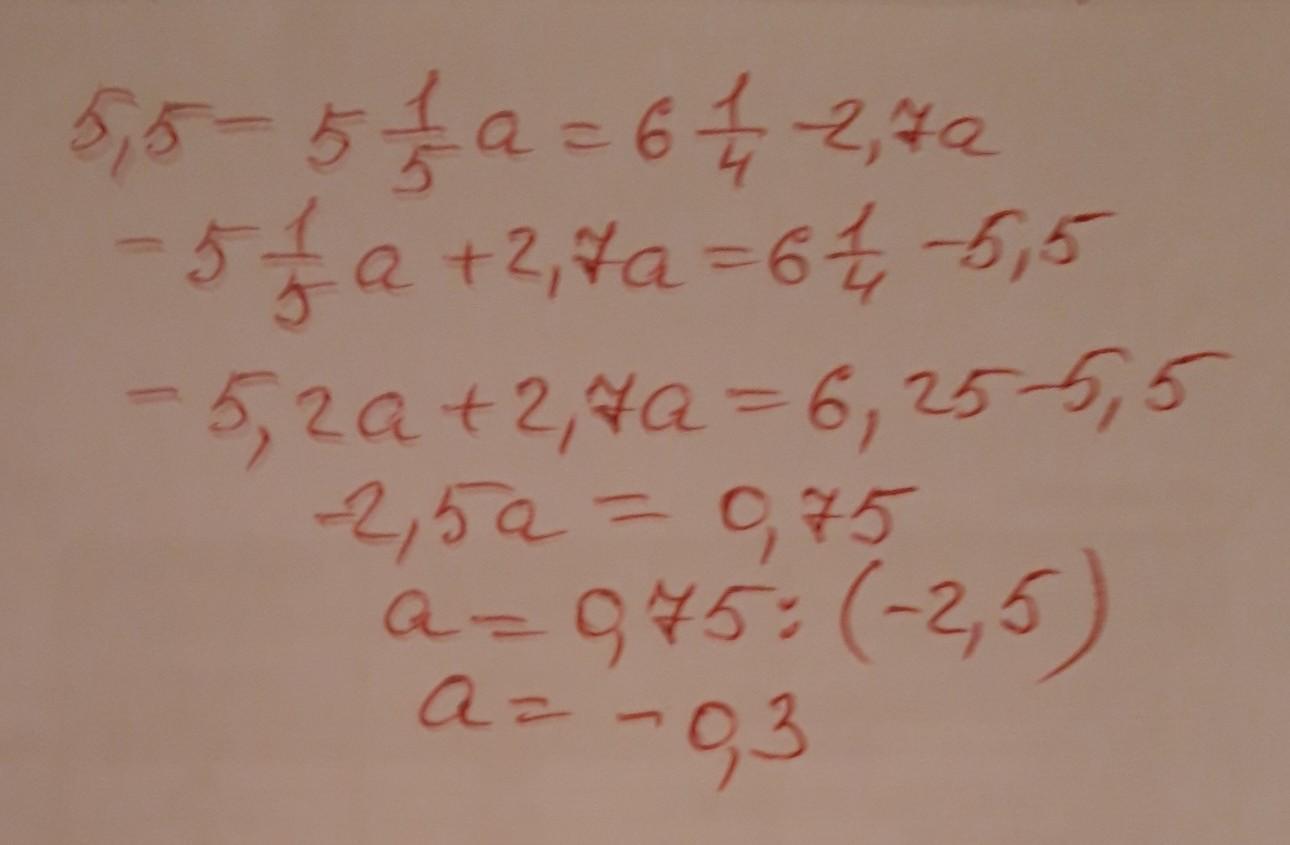 5,5 - 5 1/5 a = 6 1/4 - 2,7a
- 5 1/5 a + 2,7a = 6 1/4 - 5,5
- 5,2a + 2,7a = 6,25 - 5,5
-2,5a = 0,75
a = 0,75 : (-2,5)
a = - 0,3